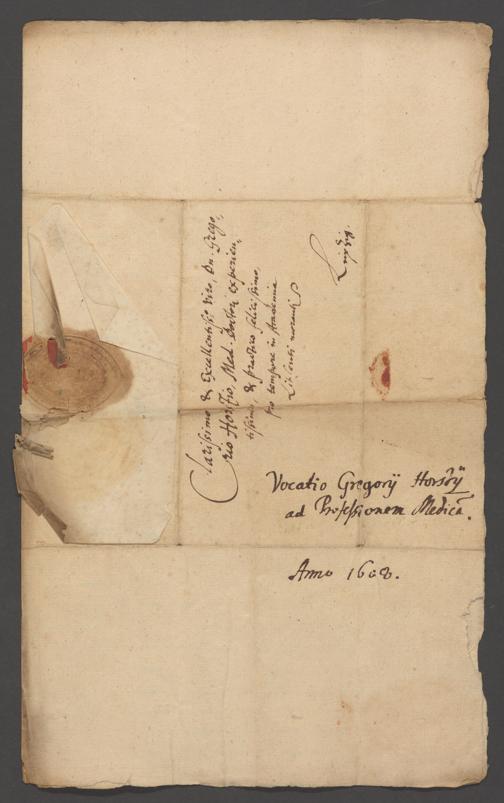 Clarissimo & Excellentiss: Viro, Dn. Grego,
rio Horstio, Med. Doctori experien,
tissimo, & practico felicissimo,
pro tempore in Academia
moranti
Vocatio Gregorij Horstij
ad Professionem Medicā.
Anno 1608.